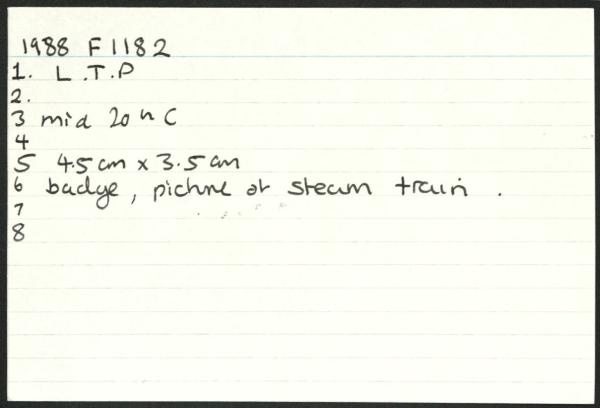 1988 F 1182
1. L.T.P
2.
3 mid 20th C
4
5 4.5 cm x 3.5 cm
6 badge, picture of steam train.
7
8